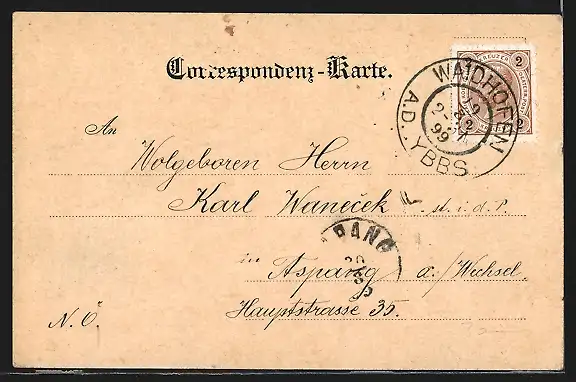 Correspondenz-Karte.
2 KREUZER 2
2 2
WAIDHOFEN
A.D. YBBS
99
An
Wolgeboren Herrn
Karl Waneček u. i. d. P.
in
Aspang a/Wechsel
Hauptstrasse 35.
N. Ö.
PANG